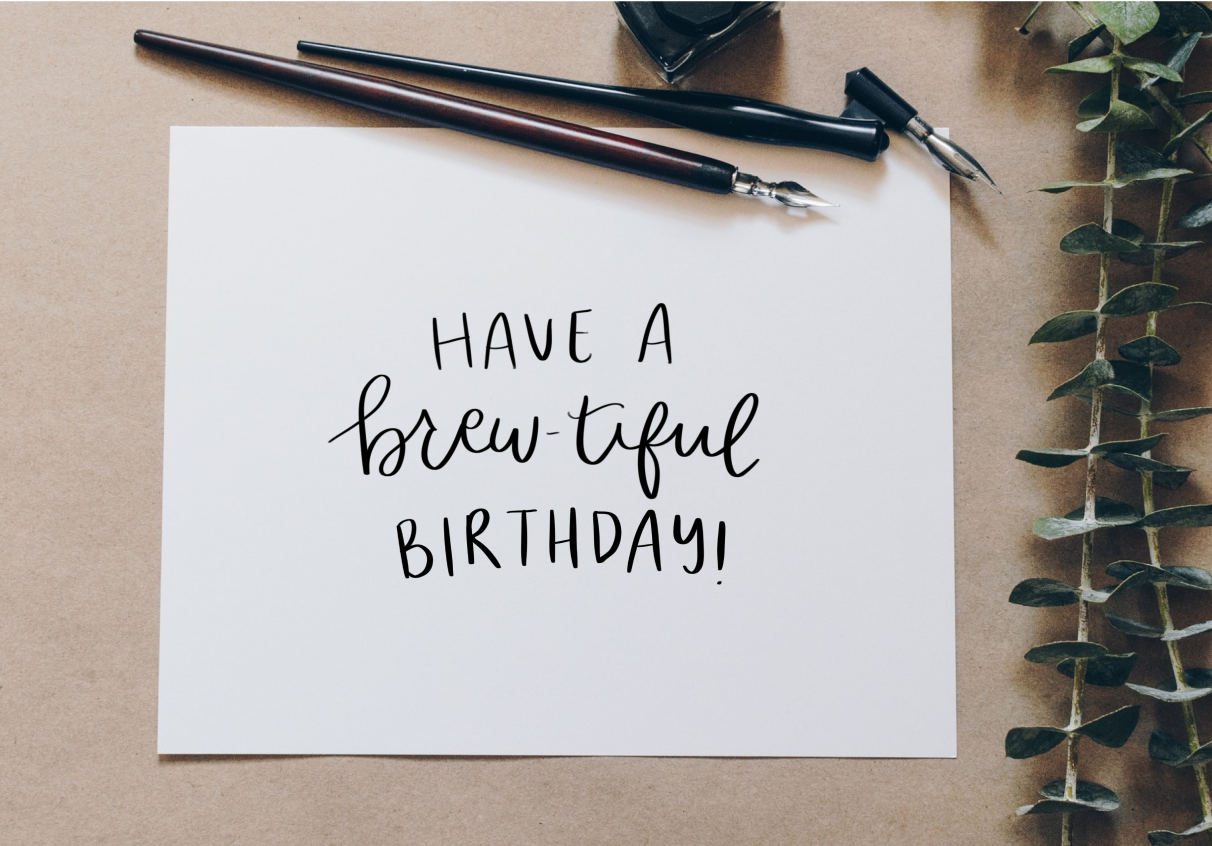 HAVE A
brew-tiful
BIRTHDAY!